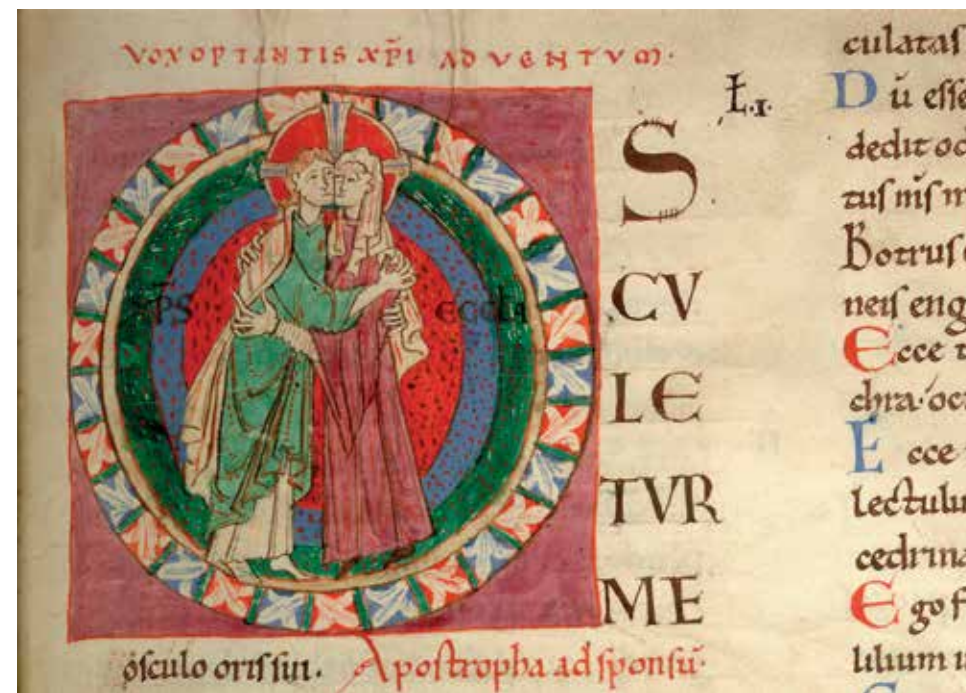 VOX OPTANTIS XP̄I ADVENTVM·
Ł·I·
S
CV
LE
TVR
ME
XP̄S ECCL̄A
osculo oris sui. Apostropha ad sponsū·
culatas
Dū esse
dedit od
tus nīs m
Botrus
neis eng
Ecce t
chra·oc
Ecce
lectulu
cedrina
Ego f
lilium